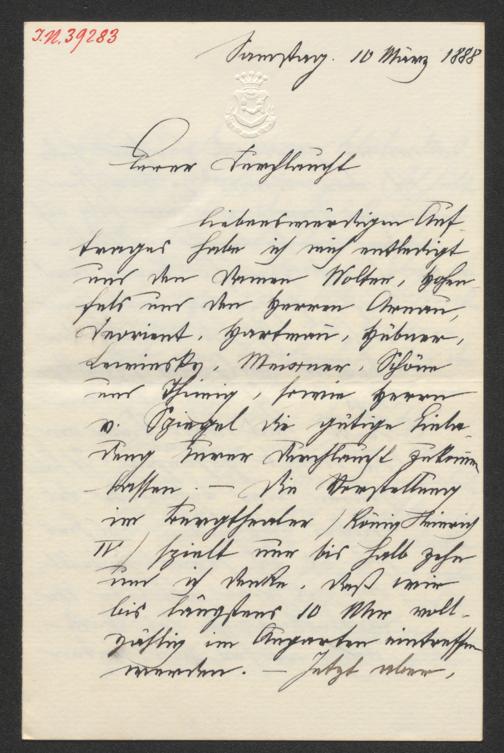 I.N. 39283
Samstag. 10 März 1888
Eurer Durchlaucht
liebenswürdigen Auf-
trages habe ich mich entledigt
und den Damen Wolter, Hohen-
fels und den Herren Arnau,
Devrient, Hartmann, Hübner,
Lewinsky, Meixner, Schöne
und Thimig, sowie Herrn
v. Spiegel die gütige Einla-
dung Eurer Durchlaucht zukommen
lassen. — Die Vorstellung
im Burgtheater / König Heinrich
IV / spielt nur bis halb zehn
und ich denke, daß wir
bis längstens 10 Uhr voll-
zählig im Augarten eintreffen
werden. — Jetzt aber,